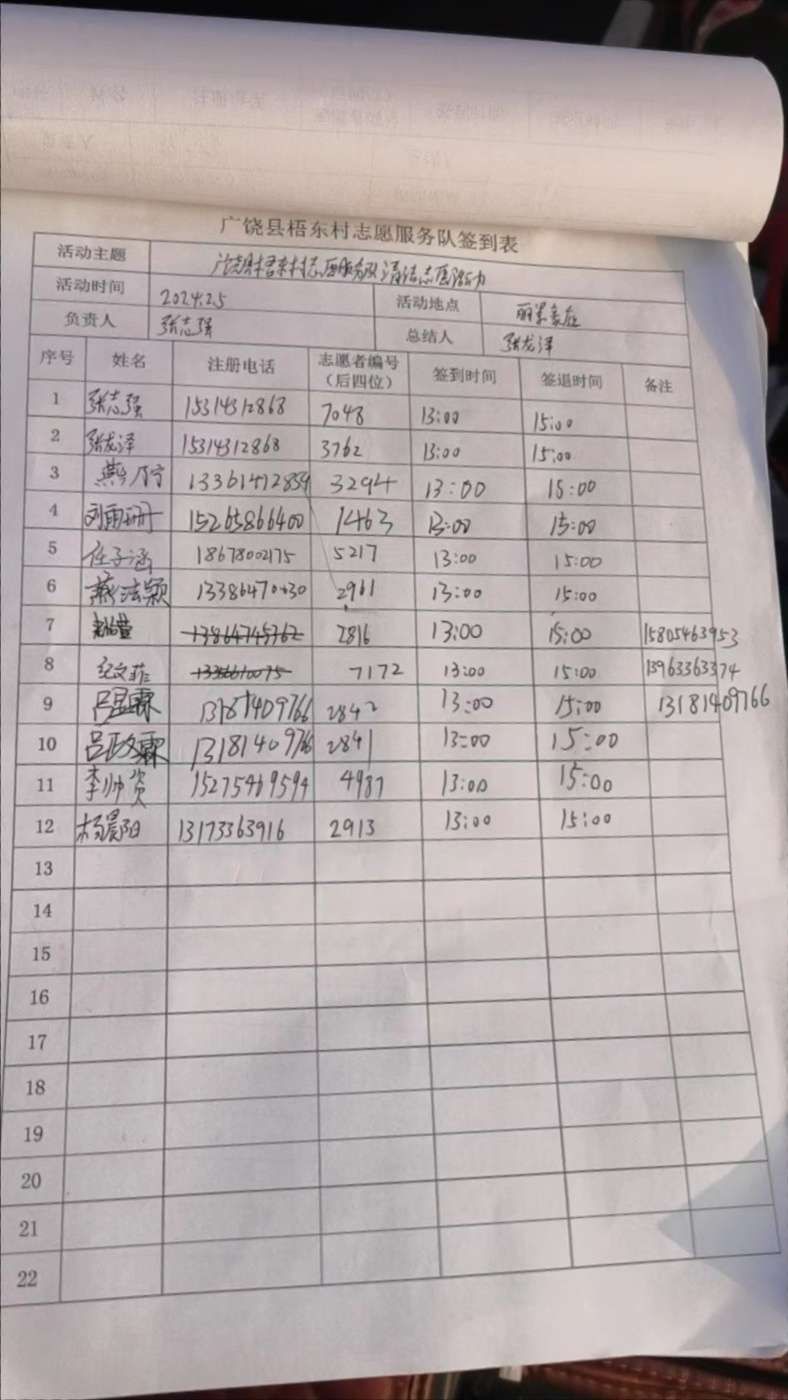 广饶县梧东村志愿服务队签到表
活动主题 广饶县梧东村志愿服务队清洁志愿活动
活动时间 2024.2.5 活动地点 丽景家庭
负责人 张志强 总结人 张龙泽
序号 姓名 注册电话 志愿者编号（后四位） 签到时间 签退时间 备注
1 张志强 15314312868 7048 13:00 15:00
2 张龙泽 15314312868 3762 13:00 15:00
3 燕乃宁 13361472859 3294 13:00 15:00
4 刘雨珊 15265866400 1463 13:00 15:00
5 任子涵 18678002175 5217 13:00 15:00
6 燕法颖 13386470030 2961 13:00 15:00
7 13864745362 2816 13:00 15:00 15805463953
8 纪文菲 7172 13:00 15:00 13963363374
9 吕昱霖 13181409766 2842 13:00 15:00 13181409766
10 吕政霖 13181409766 2841 13:00 15:00
11 李帅资 15275469594 4987 13:00 15:00
12 杨晨阳 13173363916 2913 13:00 15:00
13
14
15
16
17
18
19
20
21
22